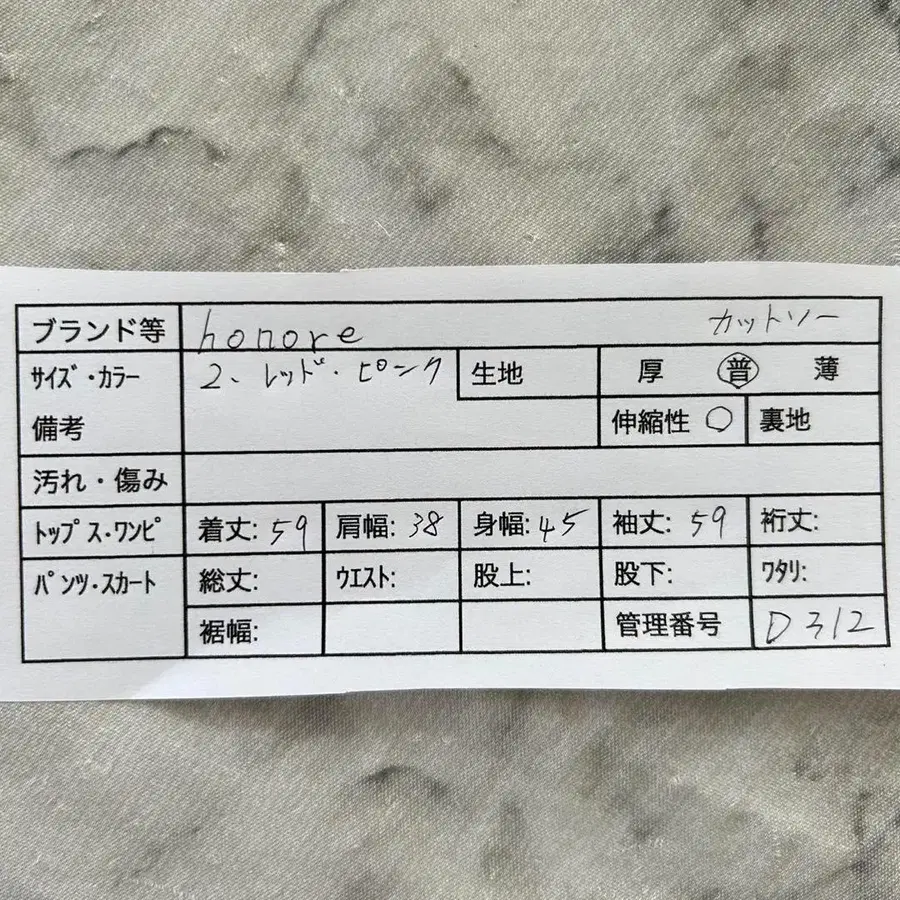 ブランド等 honore カットソー
サイズ・カラー 2、レッド・ピンク 生地 厚 普 薄
備考 伸縮性 ○ 裏地
汚れ・傷み
トップス・ワンピ 着丈: 59 肩幅: 38 身幅: 45 袖丈: 59 裄丈:
パンツ・スカート 総丈: ウエスト: 股上: 股下: ワタリ:
裾幅: 管理番号 D312